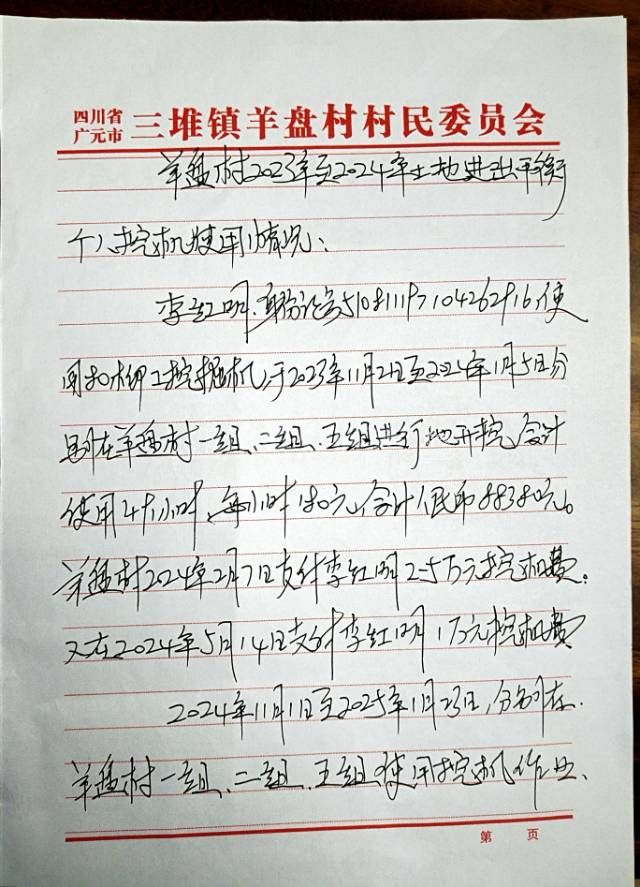 四川省
广元市 三堆镇羊盘村村民委员会
羊盘村2023年至2024年土地进出平衡
个人挖机使用情况:
李红明,身份证号510811197104262916,使
用 挖掘机,于2023年11月21日至2024年1月5日分
别在羊盘村一组、二组、五组进行地开挖,合计
使用491小时,每小时180元,合计人民币88380元。
羊盘村2024年2月7日支付李红明2.5万元挖机费.
又在2024年5月14日支付李红明1万元挖机费
2024年11月1日至2025年1月23日,分别在.
羊盘村一组、二组、五组使用挖机作业、
第 页